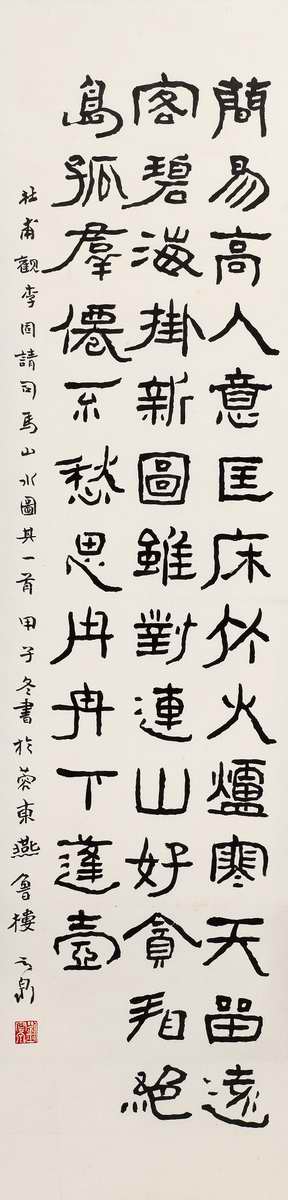 簡易高人意匡床竹火爐寒天留遠
客碧海掛新圖雖對連山好貪看絕
島孤羣僊不愁思冉冉下蓬壺
杜甫觀李固請司馬山水圖其一首 甲子冬書於東燕魯樓